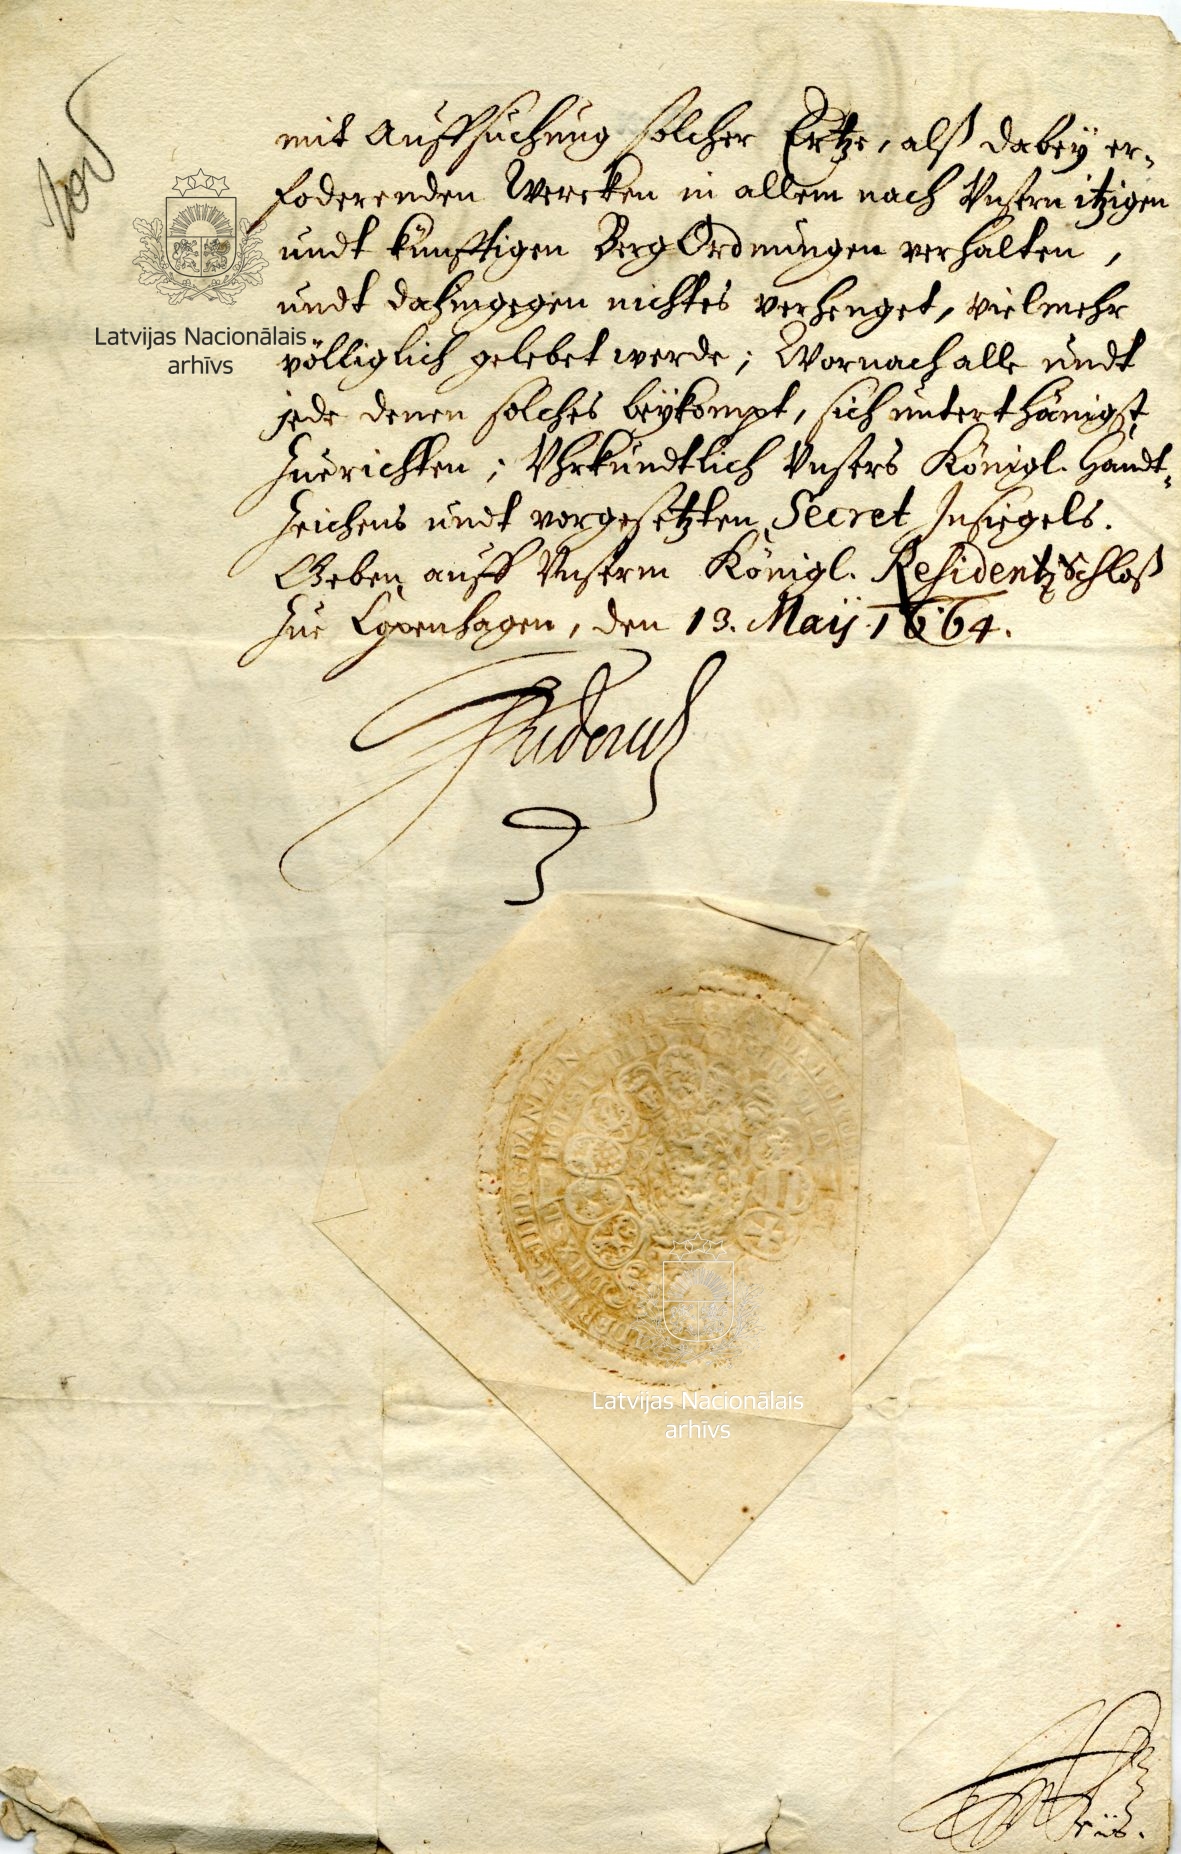 mit Auffsuchung solcher Ertze, alß dabey er-
foderenden Wercken in allem nach Vnsern itzigen
undt künfftigen BergOrdnungen verhalten,
undt dahingegen nichtes verhenget, vielmehr
völliglich gelebet werde; Wornach alle undt
jede denen solches beykompt, sich unterthänigst
Zuerichten; Vhrkundtlich Vnsers Königl. Handt-
Zeichens undt vorgesetzten Secret Insiegels.
Geben auff Vnserm Königl. ResidentzSchloß
Zue Copenhagen, den 13. Maij 1664.
Friderich
Latvijas Nacionālais
arhīvs
Latvijas Nacionālais
arhīvs